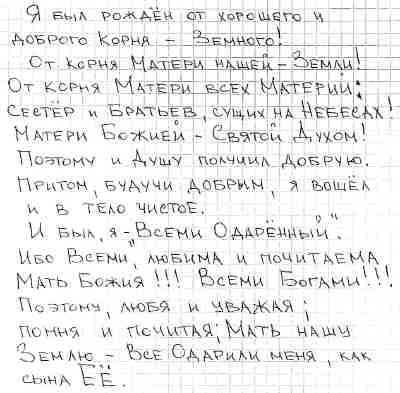 Я был рождён от хорошего и
доброго Корня – Земного!
От Корня Матери нашей – Земли!
От Корня Матери всех Материй:
Сестёр и Братьев, сущих на Небесах!
Матери Божией – Святой Духом!
Поэтому и Душу получил добрую.
Притом, будучи добрым, я вошёл
и в тело чистое.
И был, я – "Всеми Одарённый".
Ибо Всеми, любима и почитаема
Мать Божия!!! Всеми Богами!!!
Поэтому, любя и уважая;
помня и почитая; Мать нашу
Землю – Все Одарили меня, как
сына Её.